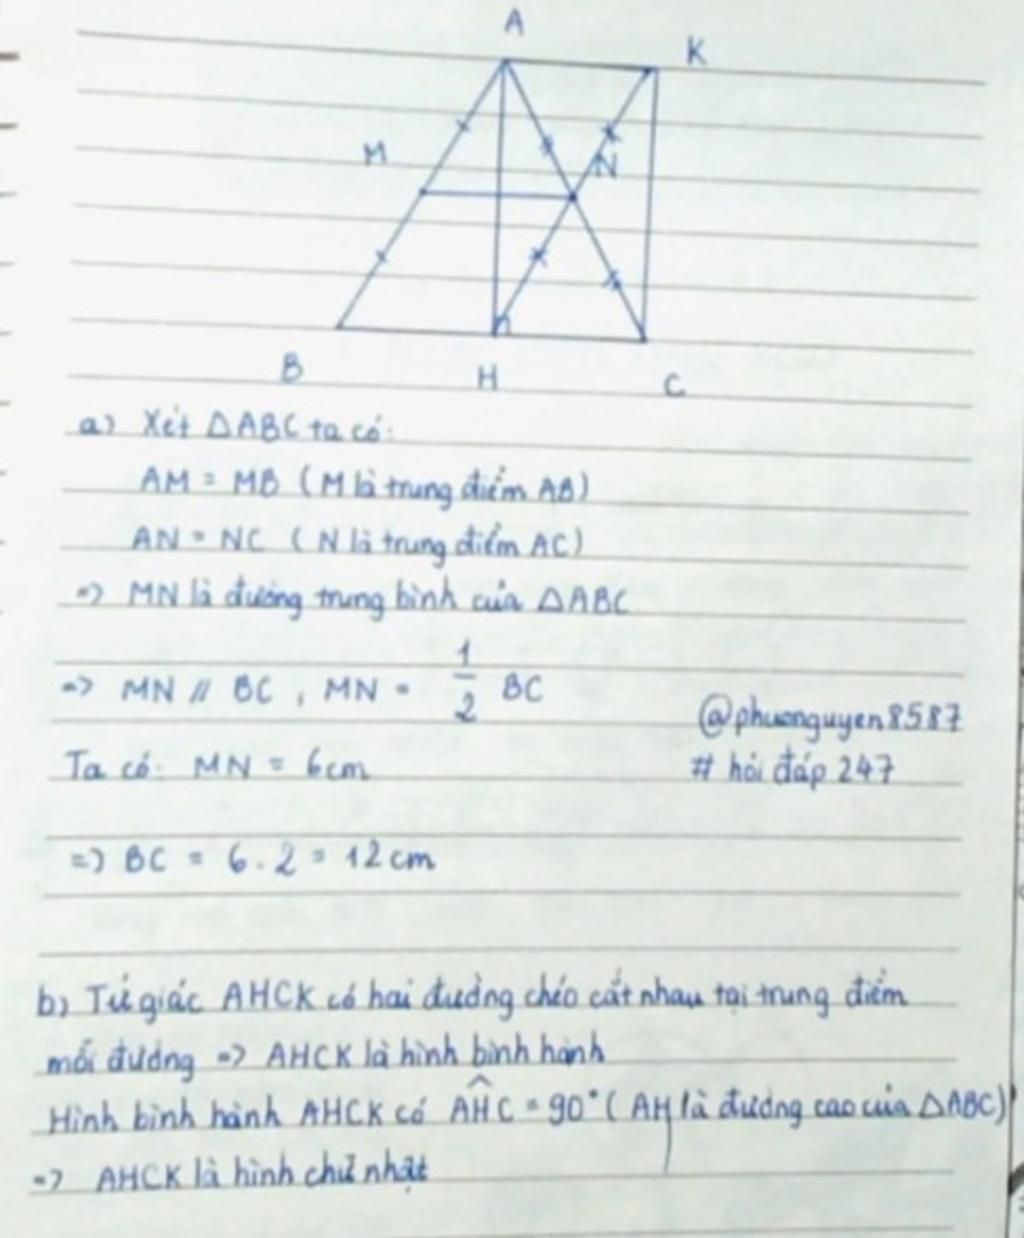 A
K
M
N
B
H
C
a) Xét ΔABC ta có:
AM = MB ( M là trung điểm AB)
AN = NC ( N là trung điểm AC)
=> MN là đường trung bình của ΔABC
=> MN // BC , MN = 1/2 BC
@phuonguyen8587
Ta có: MN = 6cm
# hỏi đáp 247
=> BC = 6 . 2 = 12 cm
b) Tứ giác AHCK có hai đường chéo cắt nhau tại trung điểm
mỗi đường => AHCK là hình bình hành
Hình bình hành AHCK có AĤC = 90° ( AH là đường cao của ΔABC)
=> AHCK là hình chữ nhật